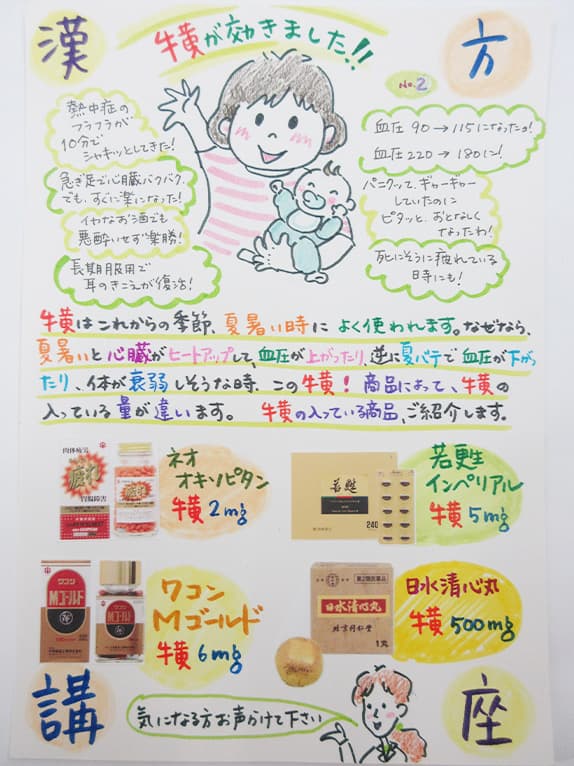 漢
方
牛黄が効きました!!
No.2
熱中症の
フラフラが
10分で
シャキッとしてきた!
急ぎ足で心臓バクバク
でも、すぐに楽になった!
イヤなお酒でも
悪酔いせず楽勝!
長期服用で
耳のきこえが復活!
血圧 90→115になったョ!
血圧 220→180に!
パニクッて、ギャーギャー
していたのに
ピタッと、おとなしく
なったわ!
死にそうに疲れている
時にも!
牛黄はこれからの季節、夏暑い時に よく使われます。なぜなら、
夏暑いと心臓がヒートアップして、血圧が上がったり、逆に夏バテで血圧が下がっ
たり、体が衰弱しそうな時、この牛黄! 商品によって、牛黄の
入っている量が違います。 牛黄の入っている商品、ご紹介します。
肉体疲労
疲れ
胃腸障害
ネオ
オキソピタン
牛黄 2mg
若甦
240
若甦
インペリアル
牛黄 5mg
ワコン
Mゴールド
ワコン
Mゴールド
牛黄 6mg
第2類医薬品
日水清心丸
北京同仁堂
1丸
日水清心丸
牛黄 500mg
講
気になる方お声かけて下さい
座